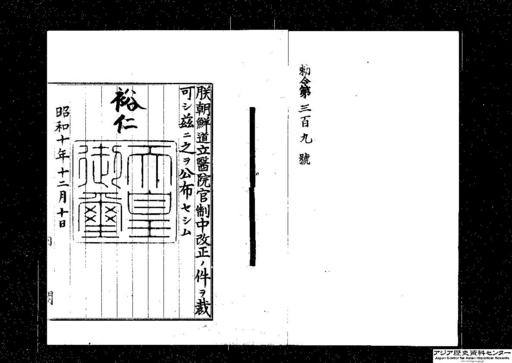 勅令第三百九號
朕朝鮮道立醫院官制中改正ノ件ヲ裁
可シ茲ニ之ヲ公布セシム
裕仁
天皇
御璽
昭和十年十二月十日
アジア歴史資料センター
Japan Center for Asian Historical Records